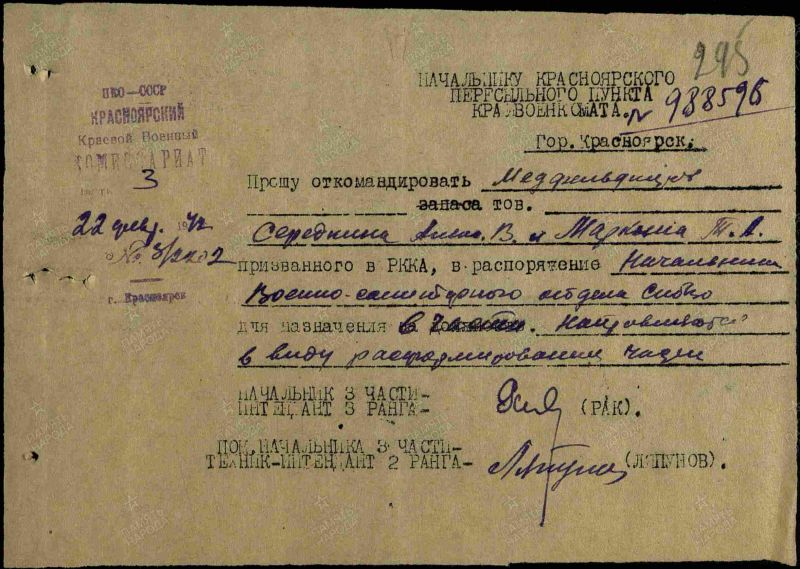 295
НКО-СССР
КРАСНОЯРСКИЙ
Краевой Военный
КОМИССАРИАТ
часть 3
22 февр. 1942
г. Красноярск
НАЧАЛЬНИКУ КРАСНОЯРСКОГО
ПЕРЕСЫЛЬНОГО ПУНКТА
КРАЙВОЕНКОМАТА. № 988596
Гор. Красноярск.
Прошу откомандировать Медфельдшеров
запаса тов.
Середкина В. и Маркина Т. А.
призванного в РККА, в распоряжение Начальника
Военно-санитарного отдела Сибво
для назначения на в части. Направляются
в виду расформирования части
НАЧАЛЬНИК 3 ЧАСТИ-
ИНТЕНДАНТ 3 РАНГА- (РАК).
ПОМ. НАЧАЛЬНИКА 3 ЧАСТИ-
ТЕХНИК-ИНТЕНДАНТ 2 РАНГА- (ЛЯПУНОВ).
ПАМЯТЬ НАРОДА